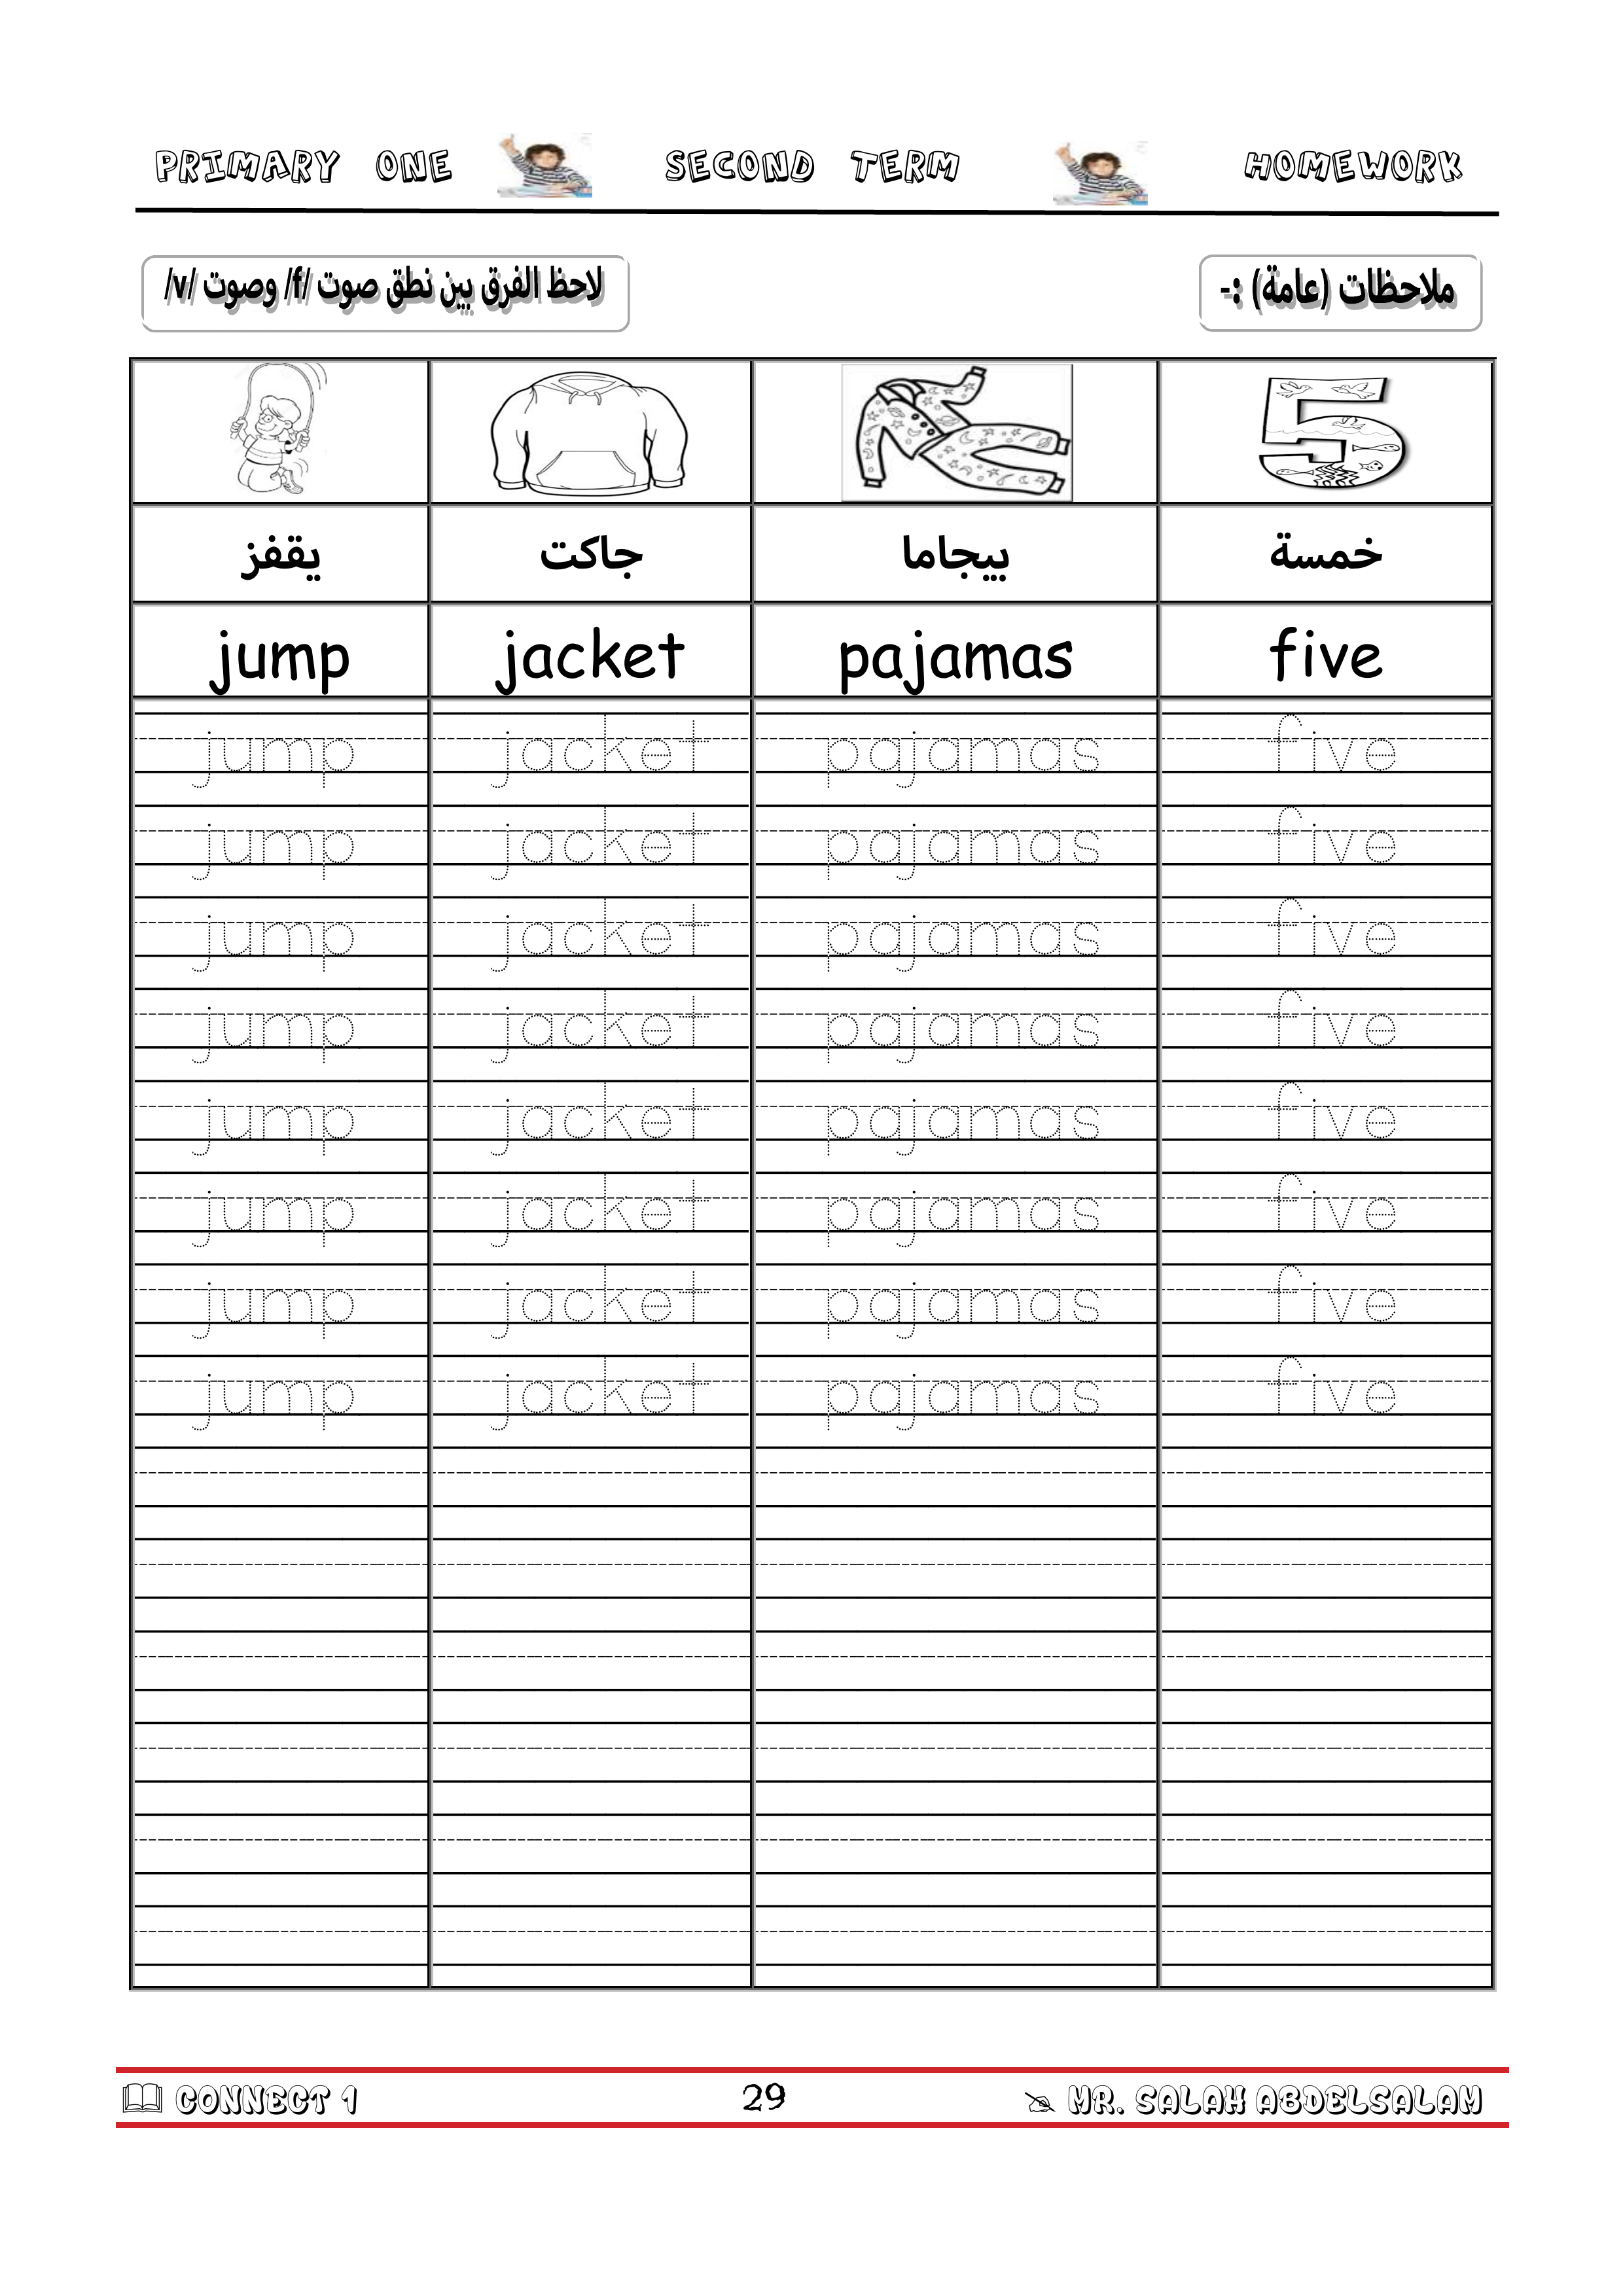 PRIMARY ONE SECOND TERM HOMEWORK
ملاحظات (عامة) :-
لاحظ الفرق بين نطق صوت /f/ وصوت /v/
5
يقفز جاكت بيجاما خمسة
jump jacket pajamas five
jump jacket pajamas five
jump jacket pajamas five
jump jacket pajamas five
jump jacket pajamas five
jump jacket pajamas five
jump jacket pajamas five
jump jacket pajamas five
jump jacket pajamas five
CONNECT 1 29 MR. SALAH ABDELSALAM